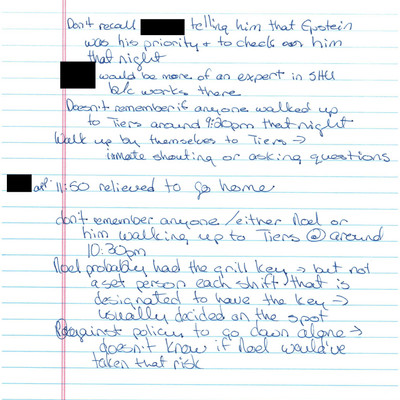 Don't recall telling him that Epstein
was his priority + to check on him
that night
would be more of an expert in SHU
b/c works there
Doesn't remember if anyone walked up
to Tiers around 9:30pm that night
Walk up by themselves to Tiers →
inmate shouting or asking questions
11:50 relieved to go home
don't remember anyone/either Noel or
him walking up to Tiers @ around
10:30pm
Noel probably had the grill key → but not
a set person each shift that is
designated to have the key →
usually decided on the spot
against policy to go down alone →
doesn't know if Noel would've
taken that risk